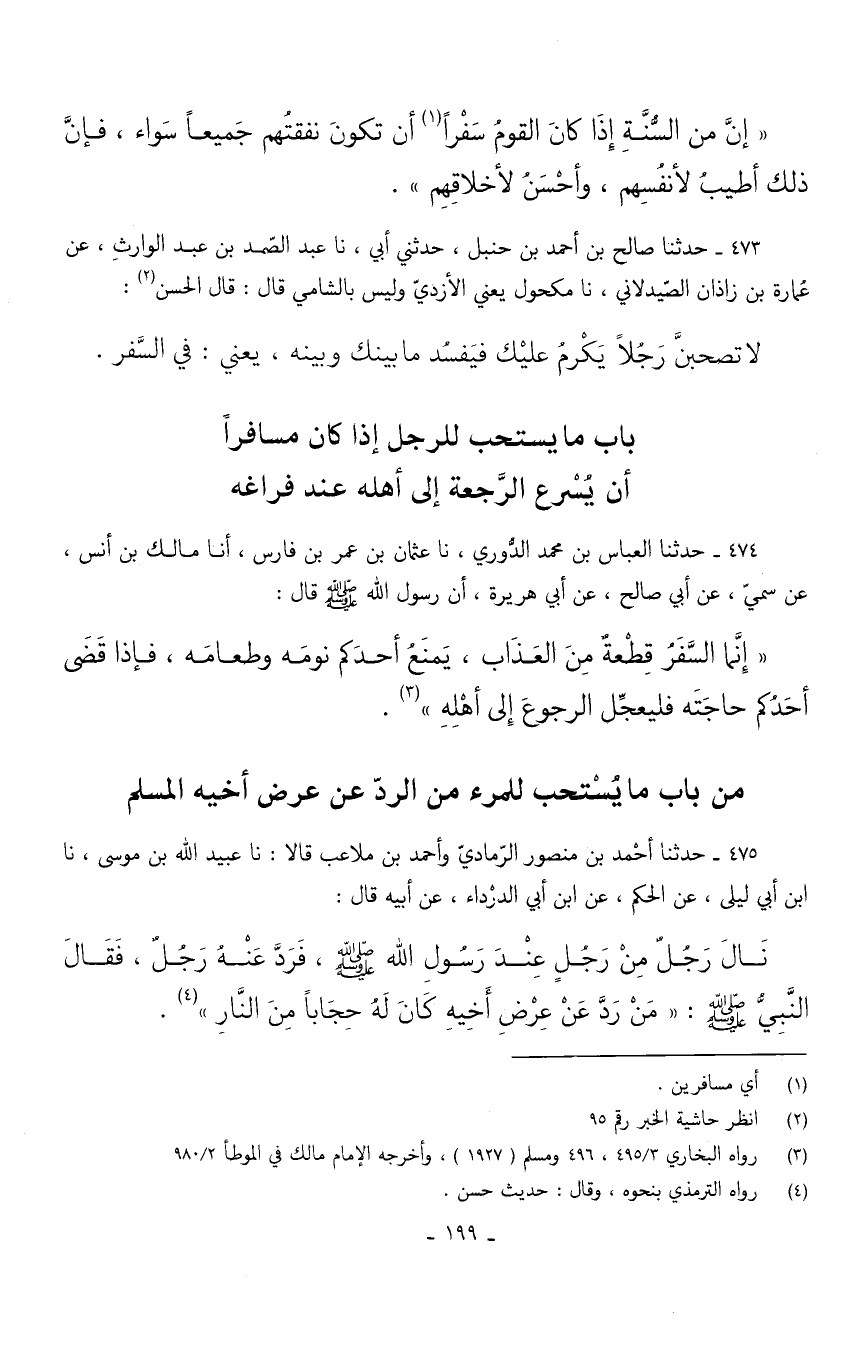 « إنَّ من السُّنَّةِ إذَا كانَ القومُ سَفْراً(١) أن تكونَ نفقتُهم جَميعاً سَواء ، فإنَّ
ذلك أطيبُ لأنفُسِهم ، وأحْسَنُ لأخلاقِهِم » .
٤٧٣ ـ حدثنا صالح بن أحمد بن حنبل ، حدثني أبي ، نا عبد الصّمد بن عبد الوارثِ ، عن
عُمارة بن زاذان الصّيدلاني ، نا مكحول يعني الأزديّ وليس بالشامي قال : قال الحسن(٢) :
لاتصحبنَّ رَجُلاً يَكْرمُ عليْك فيَفسُد مابينك وبينه ، يعني : في السَّفر .
باب مايستحب للرجل إذا كان مسافراً
أن يُسْرع الرَّجعة إلى أهله عند فراغه
٤٧٤ ـ حدثنا العباس بن محمد الدُّوري ، نا عثمان بن عمر بن فارس ، أنا مالك بن أنس ،
عن سميّ ، عن أبي صالح ، عن أبي هريرة ، أن رسول الله ﷺ قال :
« إنَّما السَّفَرُ قِطْعةٌ مِنَ العَذَاب ، يَمنَعُ أحدَكم نومَه وطعامَه ، فإذا قَضَى
أحَدُكم حاجَتَه فليعجِّل الرجوعَ إلى أهْلِهِ »(٣) .
من باب مايُسْتحب للمرء من الردّ عن عرض أخيه المسلم
٤٧٥ ـ حدثنا أحْمد بن منصور الرّماديّ وأحمد بن ملاعب قالا : نا عبيد الله بن موسى ، نا
ابن أبي ليلى ، عن الحكم ، عن ابن أبي الدرْداء ، عن أبيه قال :
نَالَ رَجُلٌ مِنْ رَجُلٍ عِنْدَ رَسُولِ الله ﷺ ، فَرَدَّ عَنْهُ رَجُلٌ ، فَقَالَ
النَّبِيُّ ﷺ : « مَنْ رَدَّ عَنْ عِرْضِ أَخِيهِ كَانَ لَهُ حِجَاباً مِنَ النَّارِ »(٤) .
(١) أي مسافرين .
(٢) انظر حاشية الخبر رقم ٩٥
(٣) رواه البخاري ٤٩٥/٣ ، ٤٩٦ ومسلم ( ١٩٢٧ ) ، وأخرجه الإمام مالك في الموطأ ٩٨٠/٢
(٤) رواه الترمذي بنحوه ، وقال : حديث حسن .
ـ ١٩٩ ـ